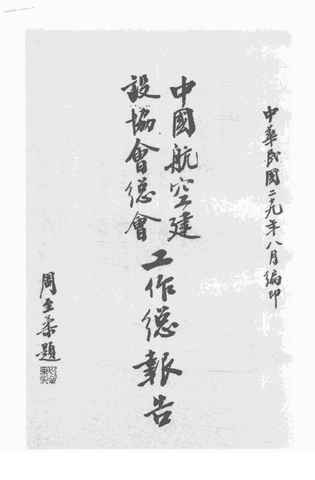 中華民國二十九年八月編印
中國航空建
設協會總會
工作總報告
周至柔題